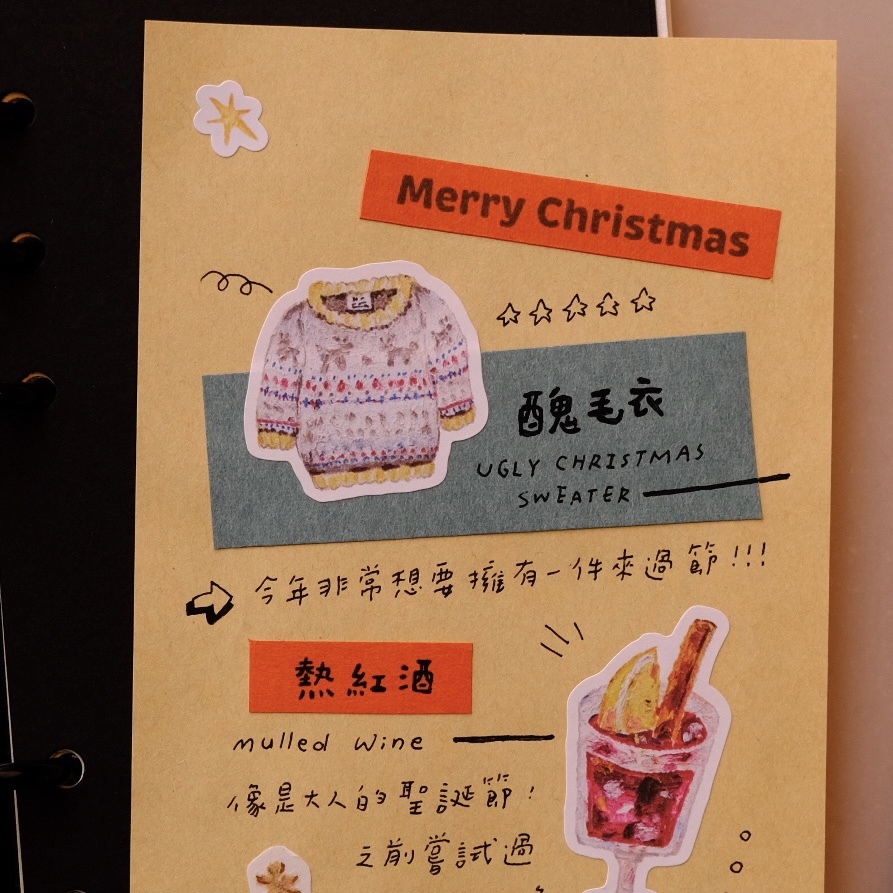 Merry Christmas
醜毛衣
UGLY CHRISTMAS
SWEATER
今年非常想要擁有一件來過節!!!
熱紅酒
mulled wine
像是大人的聖誕節!
之前嘗試過